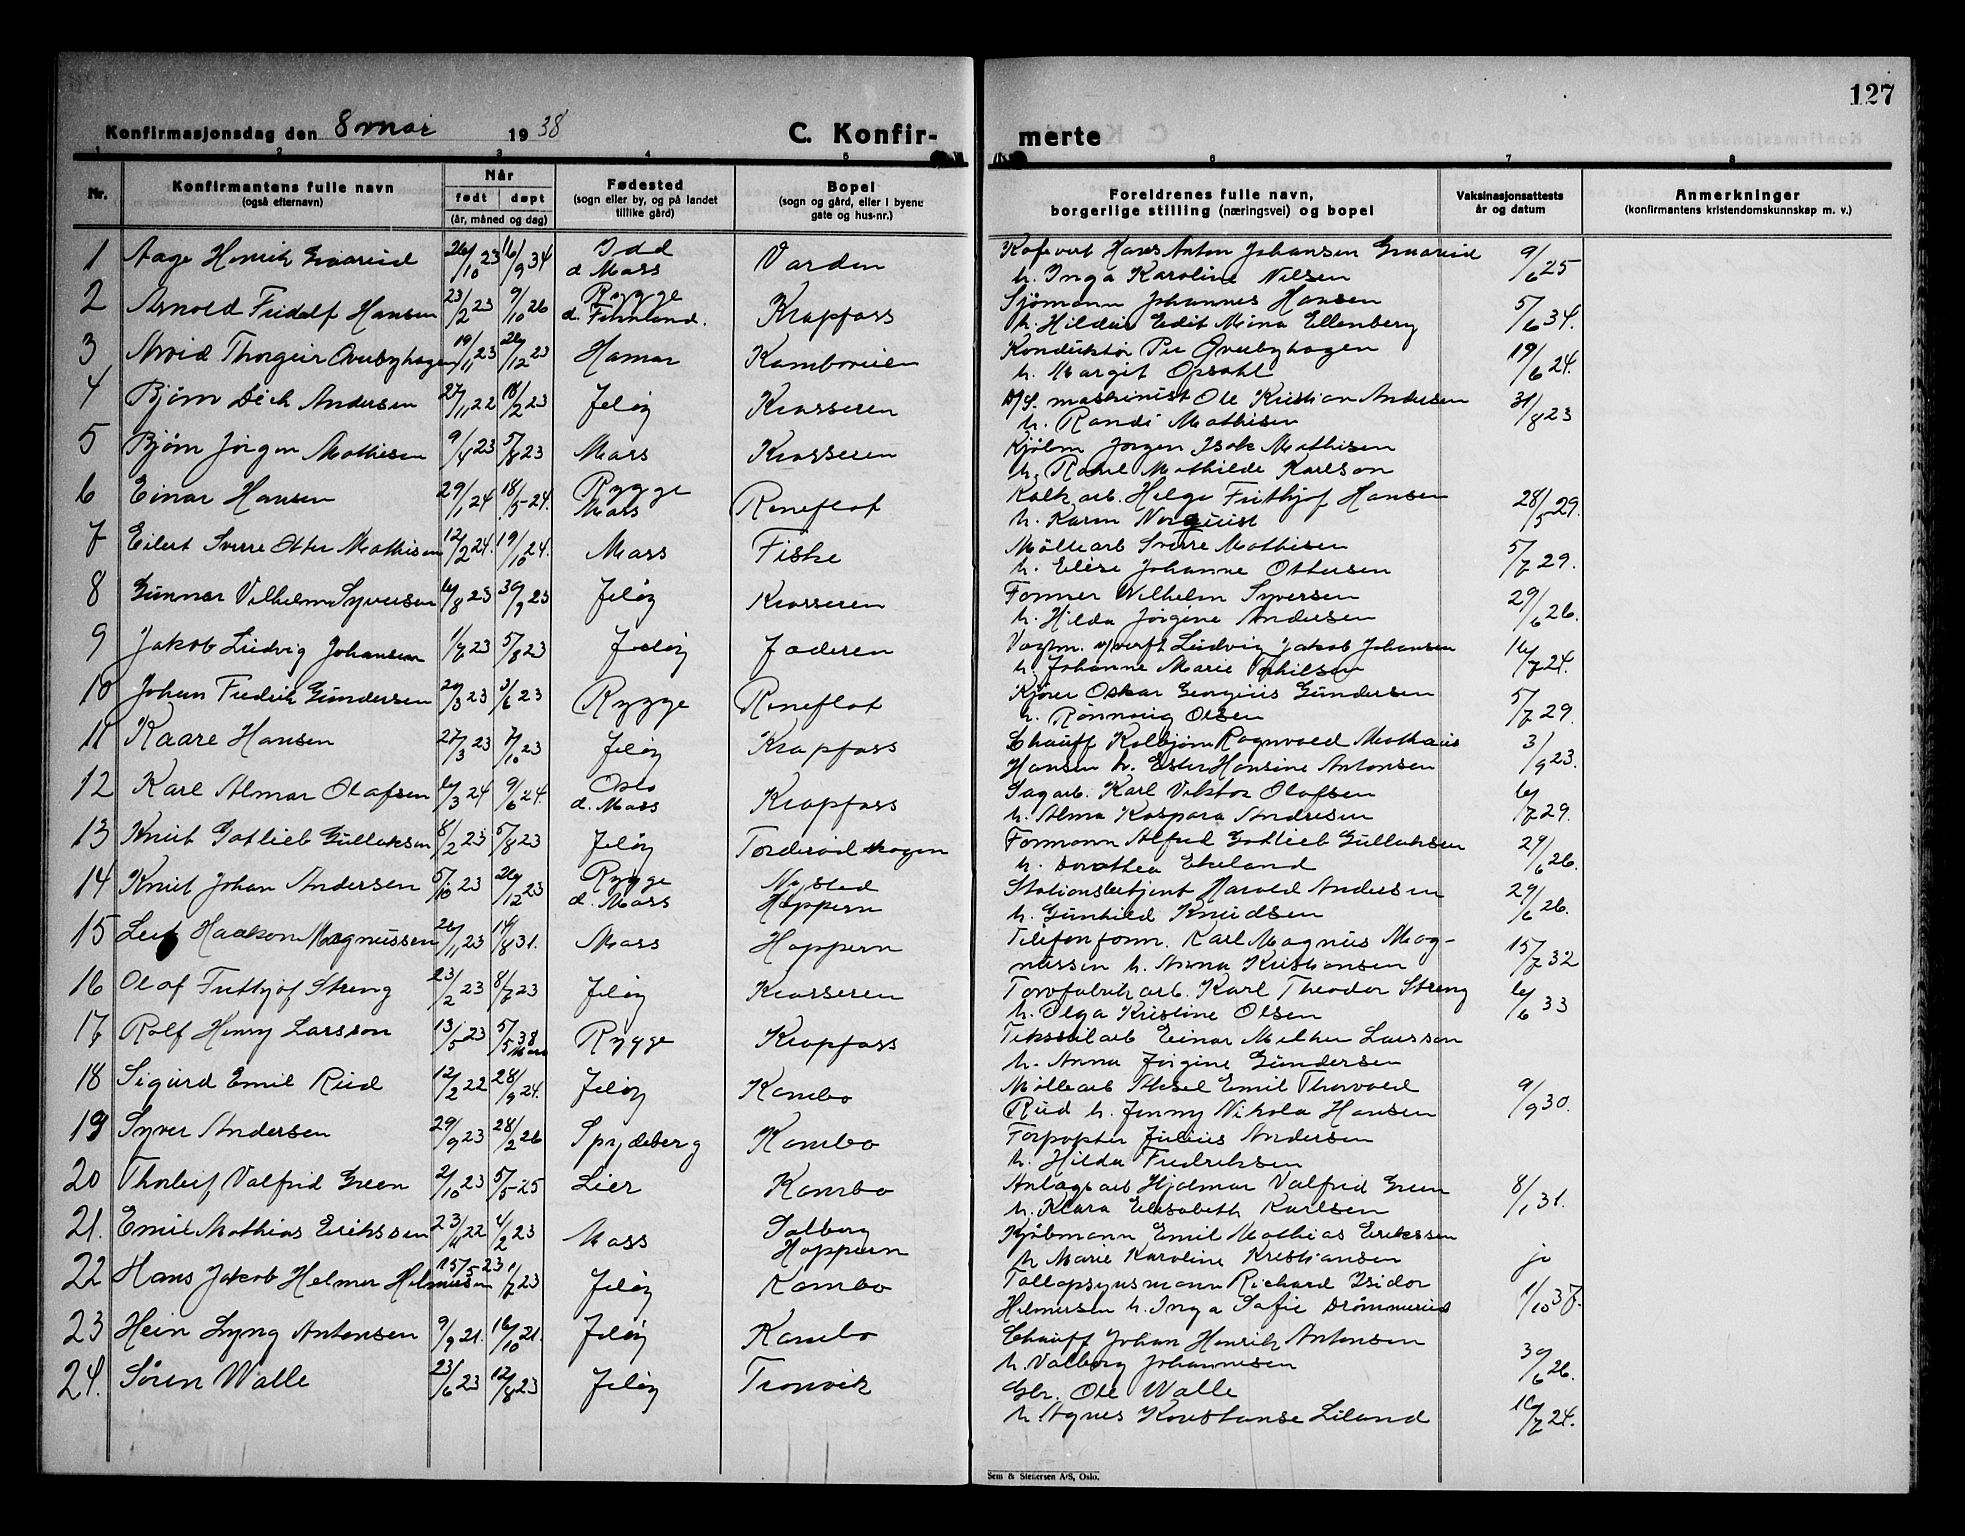 127
Konfirmasjonsdag den 8 mai 1938 C. Konfir-
merte
1 2 3 4 5
6 7 8
Nr. Konfirmantens fulle navn (også efternavn) Når født døpt (år, måned og dag) Fødested (sogn eller by, og på landet tillike gård) Bopel (sogn og gård, eller i byene gate og hus-nr.)
Foreldrenes fulle navn, borgerlige stilling (næringsvei) og bopel Vaksinasjonsattests år og datum Anmerkninger (konfirmantens kristendomskunnskap m. v.)
1 Aage Henrik 26/10 23 16/9 34 Idd d. Moss Varden
Hans Anton Johansen 9/6 25
h. Inga Karoline Nilsen
2 Arnold Fridolf Hansen 23/2 23 9/10 26 Rygge d. Finnland. Krapfoss
Sjømann Johannes Hansen 5/6 34.
h. Hildur Edit Mina Ellenberg
3 Arvid Thorgeir Overbyhagen 19/1 23 26/12 23 Hamar Kamboveien
Konduktør Per Øverbyhagen 19/6 24.
h. Margit Opsahl
4 Bjørn Dick Andersen 27/11 22 18/2 23 Jeløy Krosseren
D/S. maskinist Ole Kristian Andersen 31/8 23
h. Randi Mathisen
5 Bjørn Jørgen Mathisen 9/4 23 5/8 23 Moss Krosseren
Kjølm Jørgen Isak Mathisen
h. Mathilde Karlson
6 Einar Hansen 29/1 24 18/5-24. Rygge Moss Reneflot
Kalk arb. Helge Frithjof Hansen 28/5 29.
h. Karen Norquist
7 Eilert Sverre Otter Mathisen 12/2 24. 19/10 24. Moss Fiske
Møllearb Sverre Mathisen 5/7 29.
h. Elise Johanne Ottersen
8 Gunnar Vilhelm Syversen 6/8 23 30/9 23 Jeløy Krosseren
Former Wilhelm Syversen 29/6 26.
h. Hilda Jørgine Andersen
9 Jakob Ludvig Johansen 1/7 23 5/8 23 Jeløy Joderen
Vagtm. v/verft Ludvig Jakob Johansen 16/7 24.
h. Johanne Marie
10 Johan Fredrik Gundersen 20/3 23 3/6 23 Rygge Reneflot
Kjører Oskar Georgius Gundersen 5/7 29.
h. Rønnaug Olsen
11 Kaare Hansen 27/3 23 7/10 23 Jeløy Krapfoss
Chauff Kolbjørn Ragnvald Mathæus 3/9 23.
Hansen h. Ester Hansine Antonsen
12 Karl Almar Olafsen 6/3 24 9/6 24. Oslo d. Moss Krapfoss
Sagarb. Karl Viktor Olofsen 6/7 29.
h. Alma Kaspara Andresen
13 Knut Gotlieb Gullaksen 8/2 23 5/8 23 Jeløy Torderødskogen
Formann Alfred Gotlieb Gullaksen 29/6 26.
h. Dorothea Ekeland
14 Knut Johan Andersen 5/10 23 26/12 23 Rygge d. Moss Nysted Hoppern
Stationsbetjent Harald Andersen 29/6 26.
h. Gunhild Knudsen
15 Leif Haakon Magnussen 26/1 23 14/8 31. Moss Hoppern
Telefonform. Karl Magnus Mag- 15/7 32
nussen h. Anna Kristiansen
16 Olaf Frithjof Streng 23/2 23 8/7 23 Jeløy Krosseren
Torvfabrik arb. Karl Theodor Streng 6/6 33
h. Olga Kristine Olsen
17 Rolf Henry Larsson 13/5 23 5/5 38 Moss Rygge Krapfoss
Tekstilarb Einar Melker Larsson
h. Anna Jørgine Gundersen
18 Sigurd Emil Rud 12/2 22 28/9 24. Jeløy Kambo
Møllearb Aksel Emil Thorvald 9/9 30.
Rud h. Jenny Nikola Hansen
19 Syver Andersen 29/9 23 28/2 26 Spydeberg Kambo
Torpopter Julius Andersen
h. Hilda Fredriksen
20 Thorleif Valfrid Green 2/10 23 5/5-25 Lier Kambo
Anlægsarb Hjalmar Valfrid Green 8/1 31.
h. Klara Elisabeth Karlsen
21. Emil Mathias Eriksson 23/11 22 4/2 23 Moss Solberg Hoppern
Kjøbmann Emil Mathias Erikssen
h Marie Karoline Kristiansen jo
22 Hans Jakob Helmer Helmersen 15/5 23 1/7 23 Jeløy Kambo
Tollopsynsmann Richard Isidor 1/10 37.
Helmersen h. Inga Sofie Drømmerud
23 Hein Lyng Antonsen 9/9 21. 16/10 21. Jeløy Kambo
Chauff Johan Henrik Antonsen 30/6 26.
h. Valborg Johannesen
24. Søren Walle 23/6 23 12/8 23 Jeløy Tronvik
Gbr. Ole Walle 16/7 24.
h. Agnes Konstanse Liland
Sem & Stenersen A/S, Oslo.